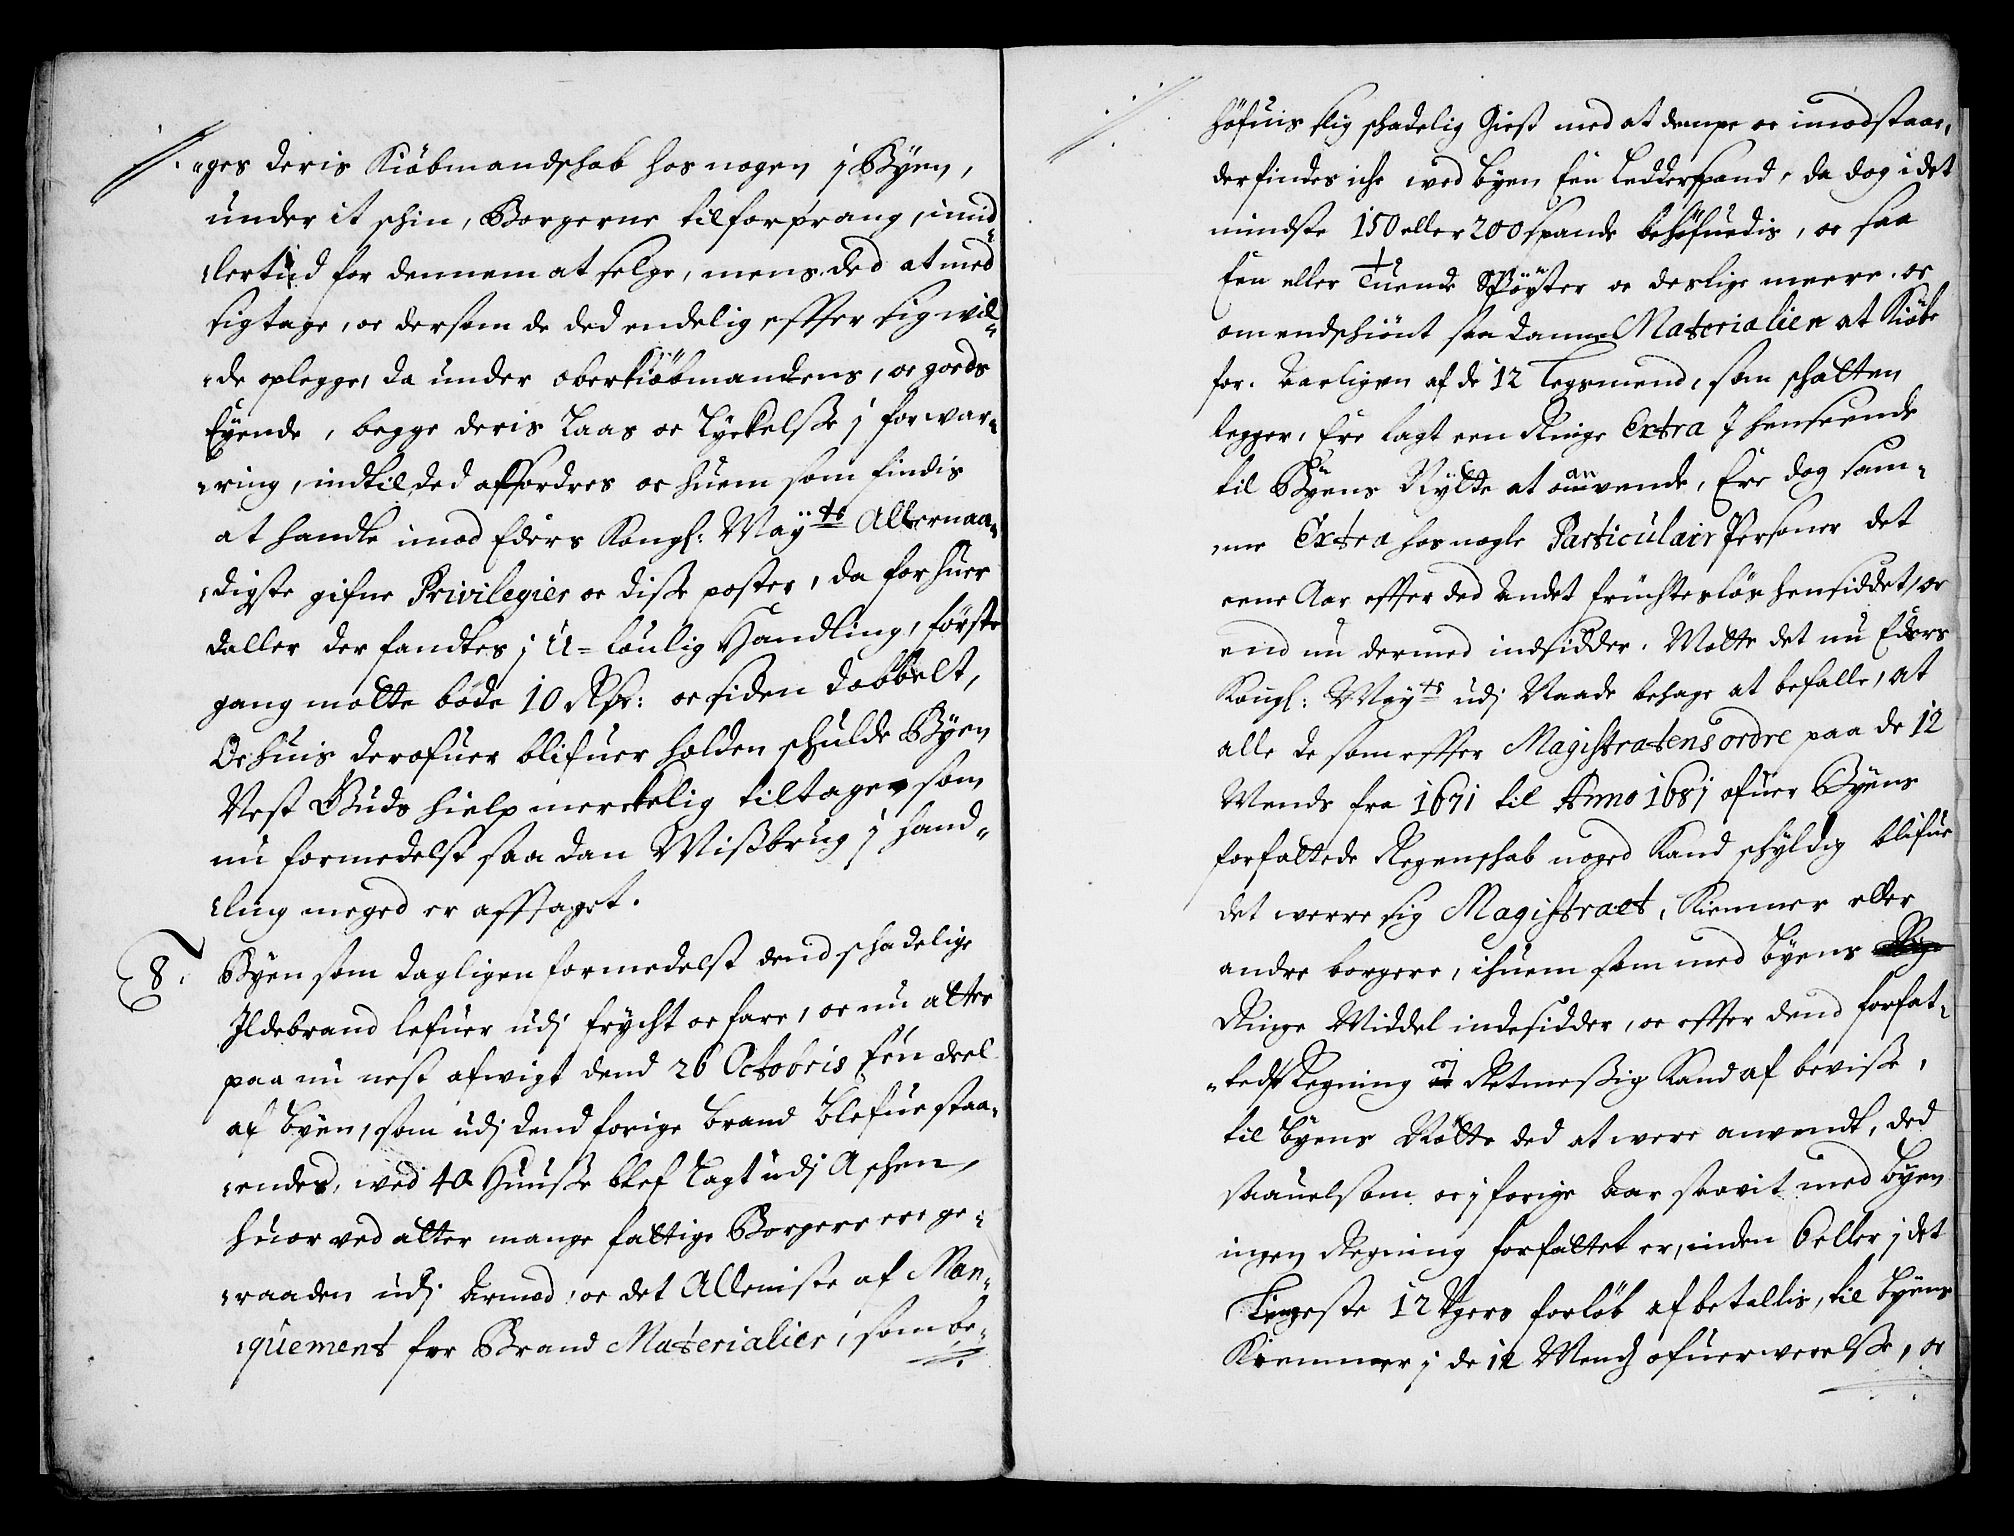 "ges deris Kiöbmandschab hos nogen j Byen,
under it schin, Borgerne til forprang, imid-
"lertiid for dennem at selge, mens ded at med
sig tage, oc dersom de ded endelig effter sig wil-
"de oplegge, da under oberkiöbmandens, oc godts
Eyende, begge deris Laas oc Lyckelsse j forwar-
"ring, indtil ded affordres oc huem som findis
at handle imod Eders Kongl: Mayts Allernaa-
"digste gifne Privilegier oc disse poster, da for huer
daller der handles j U=loulig Handling, förste
gang motte böde 10 Rdr: oc siden dobbelt,
Oc huis derofuer blifuer holden schulde Byen
Nest Guds hielp merckelig tiltage, som
nu formedelst saadan Missbrug j hand-
"ling meged er afftaget.
8. Byen som dagligen formedelst dend schadelige
Ildebrand lefuer udj frycht oc fare, oc nu atter
paa nu nest afwigt dend 26 Octobris Een deel
af byen, som udj dend forige brand blefue staa-
"endes, wed 40 Huusse blef lagt udj Aschen,
huor ved atter mange fattige Borgere ere ge-
"raaden udj armod, oc det Allemiste af Man-
"quement for Brand Materialier, som be-
höfuis slig schadelig Giest med at dempe oc imodstaae,
der findes iche wed byen Een Ledderspand, da dog i det
mindste 150 eller 200 spande behöfuedis, oc saa
Een eller Tuende Spröyter oc deslige meere. oc
omendschiönt saadanne Materialier at Kiöbe
for. Aarligen af de 12 Legsmend, som schatten
legger, Ere lagt een Ringe Extra J henseende
til Byens Nytte at anvende, Ere dog sam-
me Extra hos nogle Particulair Personer det
eene Aar effter ded Andet fruchteslös hensiddet, oc
end nu dermed indsidder. Motte det nu Eders
Kongl: Mayts udj Naade behage at befalle, at
alle de som effter Magistratens ordre paa de 12
Mends fra 1671 til Anno 1681 ofuer Byens
forfattede Regenschab noged Kand schyldig blifue
det werre sig Magistraet, Kiemner eller
andre borgere, ihuem som med byens
Ringe Middel indesidder, oc effter dend forfat-
"tedst Regning ej Retmessig Kand af bevisse,
til byens Nötte ded at were anvendt, ded
saauelsom oc j forige Aar saavit med byen
ingen Regning forfattet er, inden 6 eller j det
Lengeste 12 Ugers forlöb af betallis, til byens
Kiemner j de 12 Mends ofuerwerelsse, oc